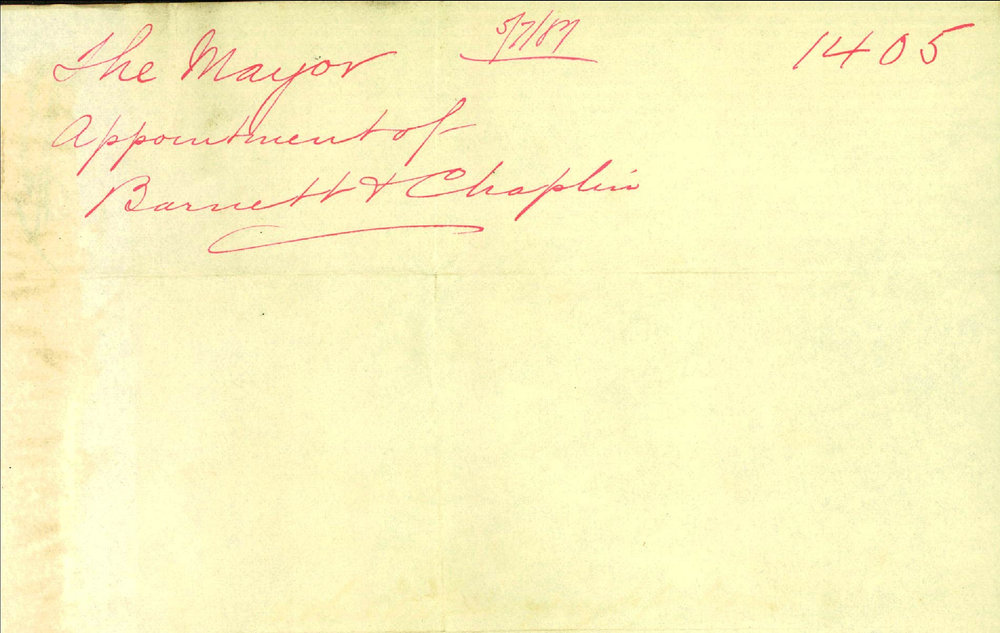 The Mayor 5/7/87 1405
Appointment of
Barnett & Chaplin